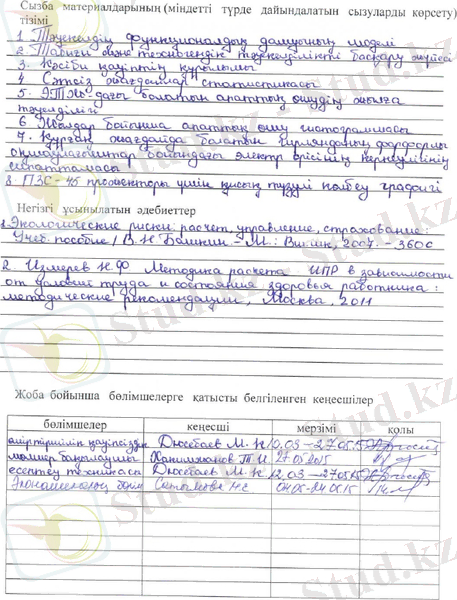 Сызба материалдарының (міндетті түрде дайындалатын сызуларды көрсету)
тізімі
1 Тәуекелдің функционалдық дамуының моделі
2 Табиғи және техногендік тәуекелділікті басқару жүйесі
3. Кәсіби қауіптің құрылымы
4 Сәтсіз жағдайлар статистикасы
5. ЭТЖ-дағы болатын апаттық өшудің жылға
тәуелділігі
6 Жылдар бойынша апаттық өшу гистограммасы
7. Құрғақ жағдайда болатын гирлянданың фарфорлы
оқшаулағыштар бойындағы электр өрісінің кернеулігінің
сипаттамасы
8. ПЗС-45 прожекторы үшін қисық түзулі
графигі
Негізгі ұсынылатын әдебиеттер
1. Экологические риски: расчет, управление, страхование:
Учеб. пособие / В.Н - М.: 2007. - 360 с
2. Измеров Н.Ф Методика расчета ИПР в зависимости
от условий труда и состояния здоровья работника:
методические рекомендации, Москва, 2011
Жоба бойынша бөлімшелерге қатысты белгіленген кеңесшілер
бөлімшелер кеңесші мерзімі қолы
өміртіршілік қауіпсіздік Дюсебаев М.К
Т.И. 27.05.2015
есептеу техникасы Дюсебаев М.К
Экономикалық бөлім